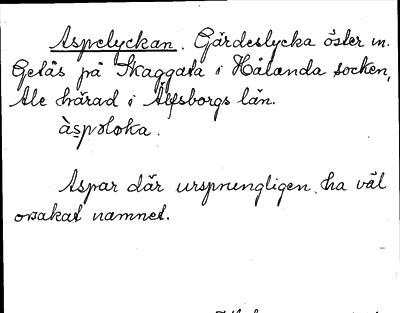 Aspelyckan. Gärdeslycka öster m.
Getås på Skaggata i Hålanda socken,
Ale härad i Älfsborgs län.
àspoloka.
Aspar där ursprungligen ha väl
orsakat namnet.